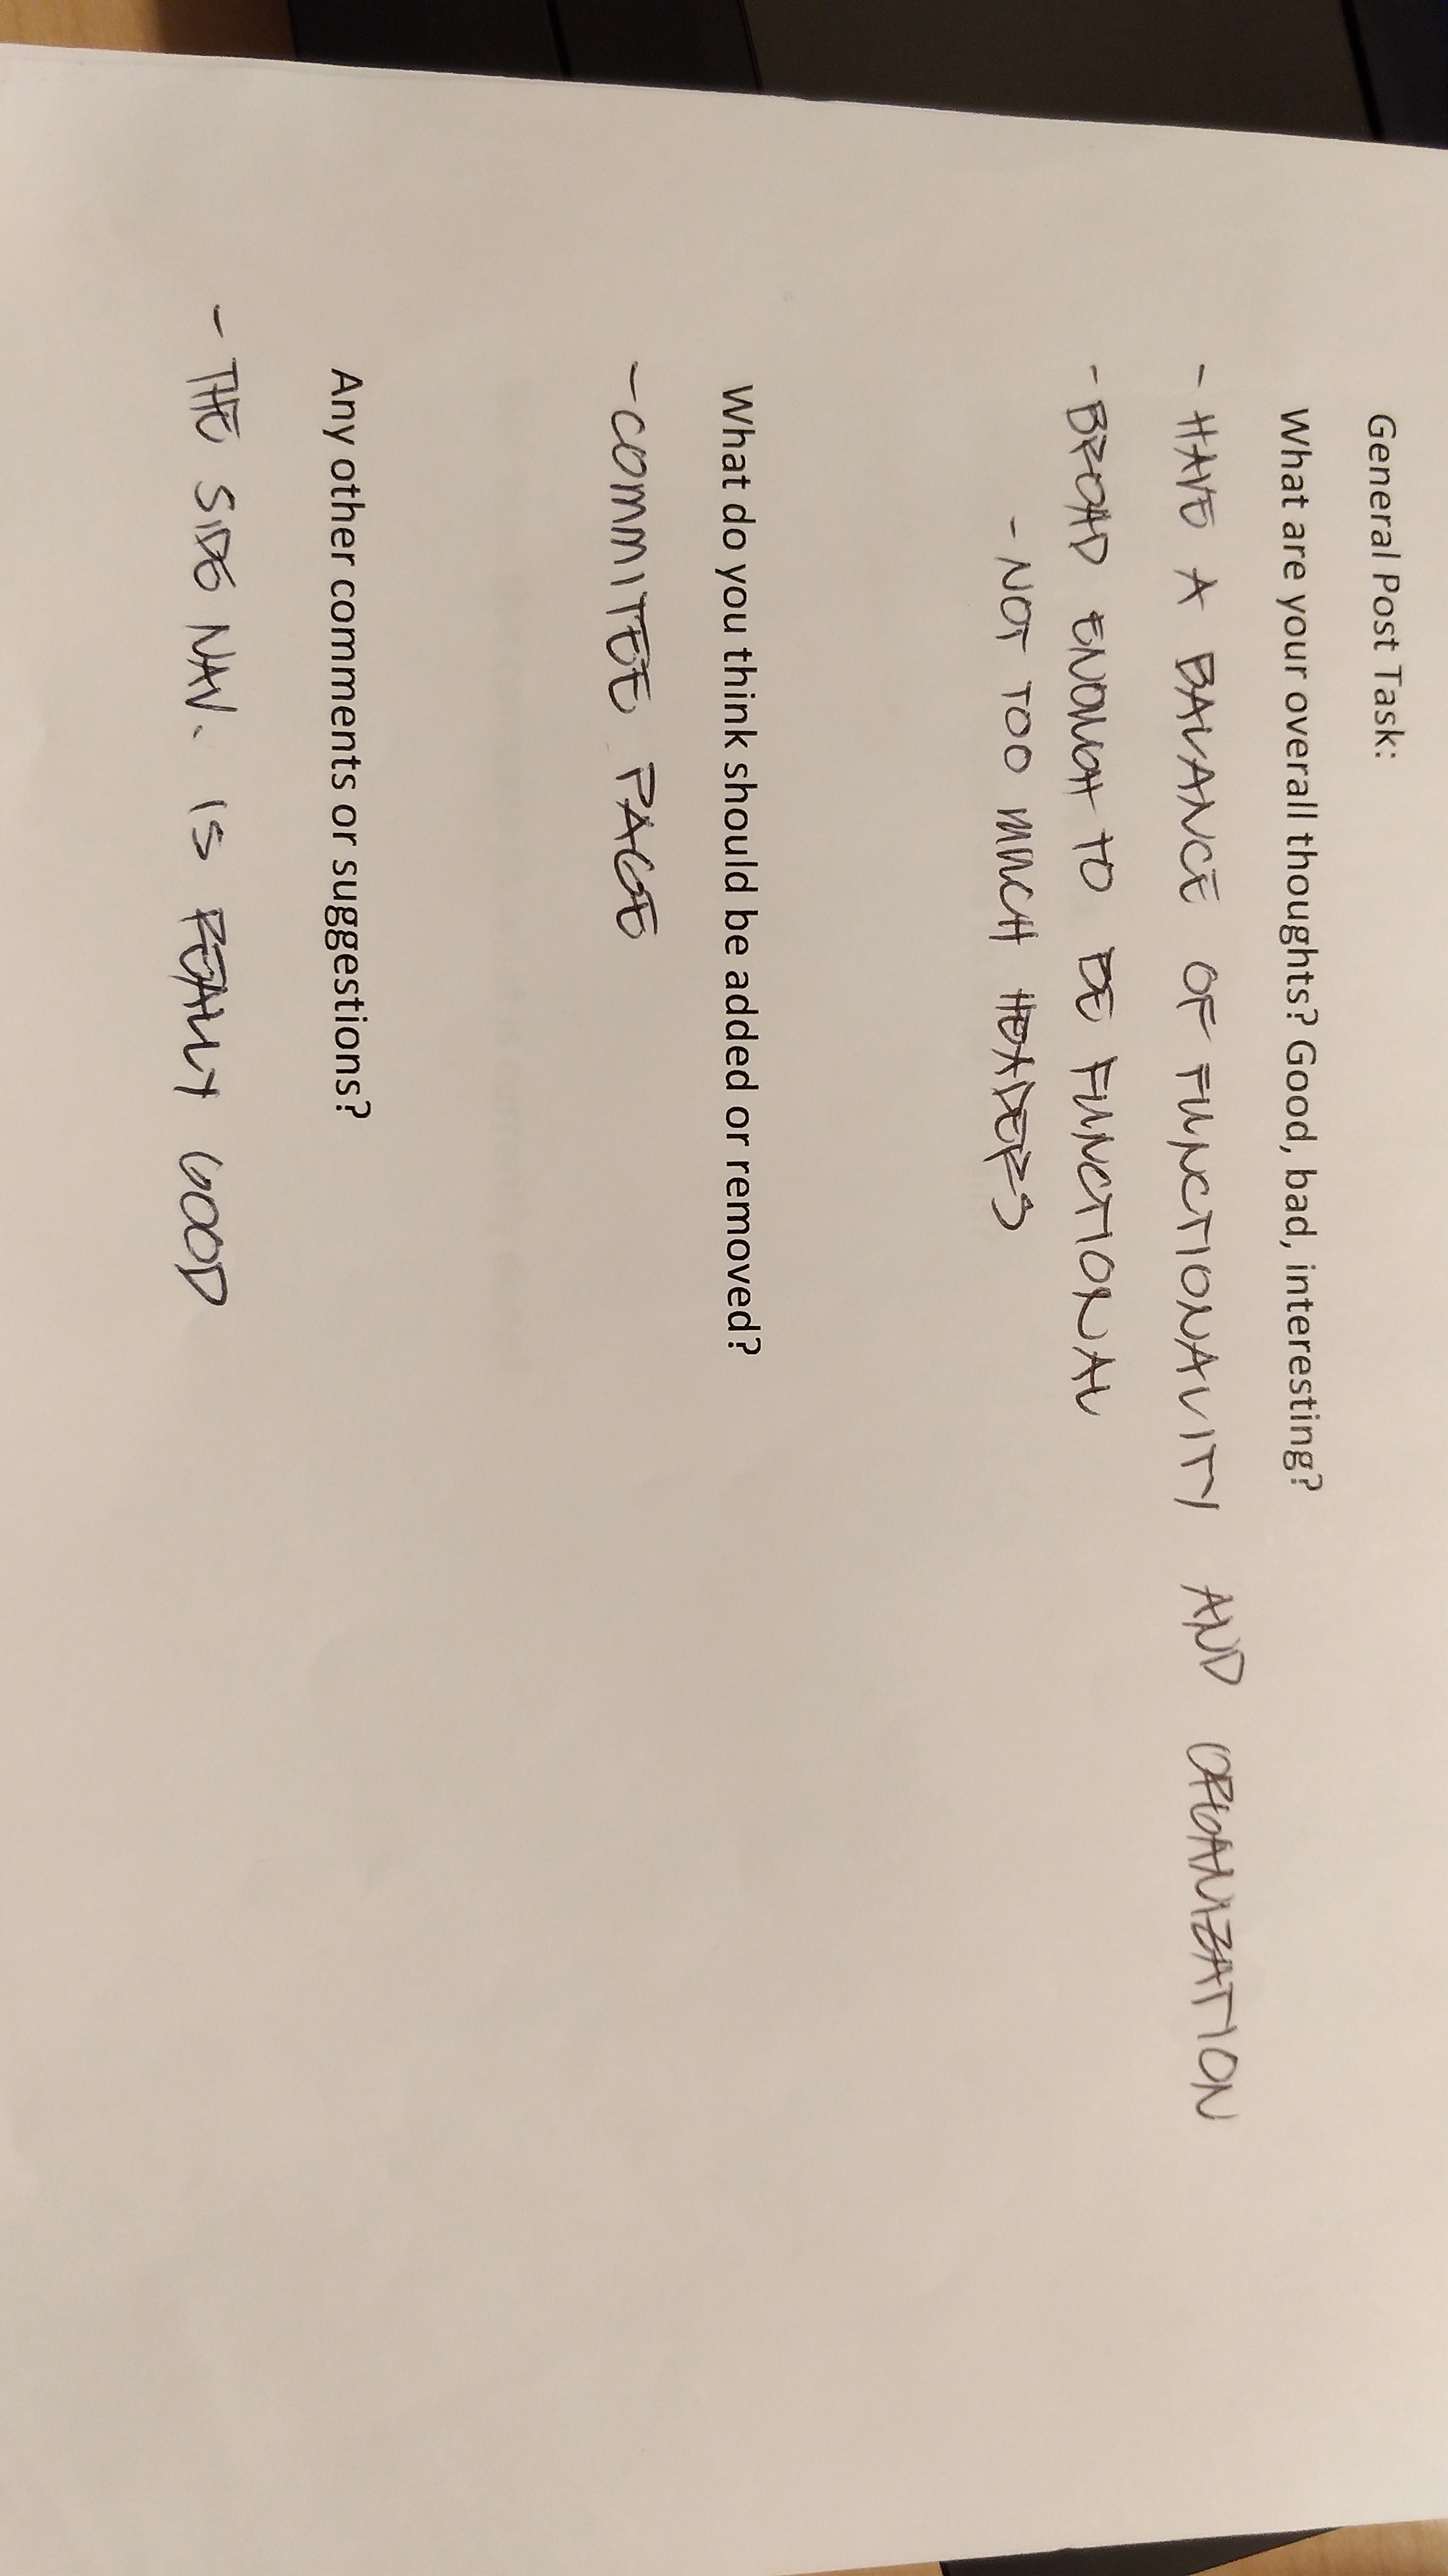 General Post Task:
What are your overall thoughts? Good, bad, interesting?
- HAVE A BALANCE OF FUNCTIONALITY AND ORGANIZATION
- BROAD ENOUGH TO BE FUNCTIONAL
- NOT TOO MUCH HEADERS
What do you think should be added or removed?
- COMMITEE PAGE
this compare to what is currently done?
Any other comments or suggestions?
- THE SIDE NAV. IS REALLY GOOD